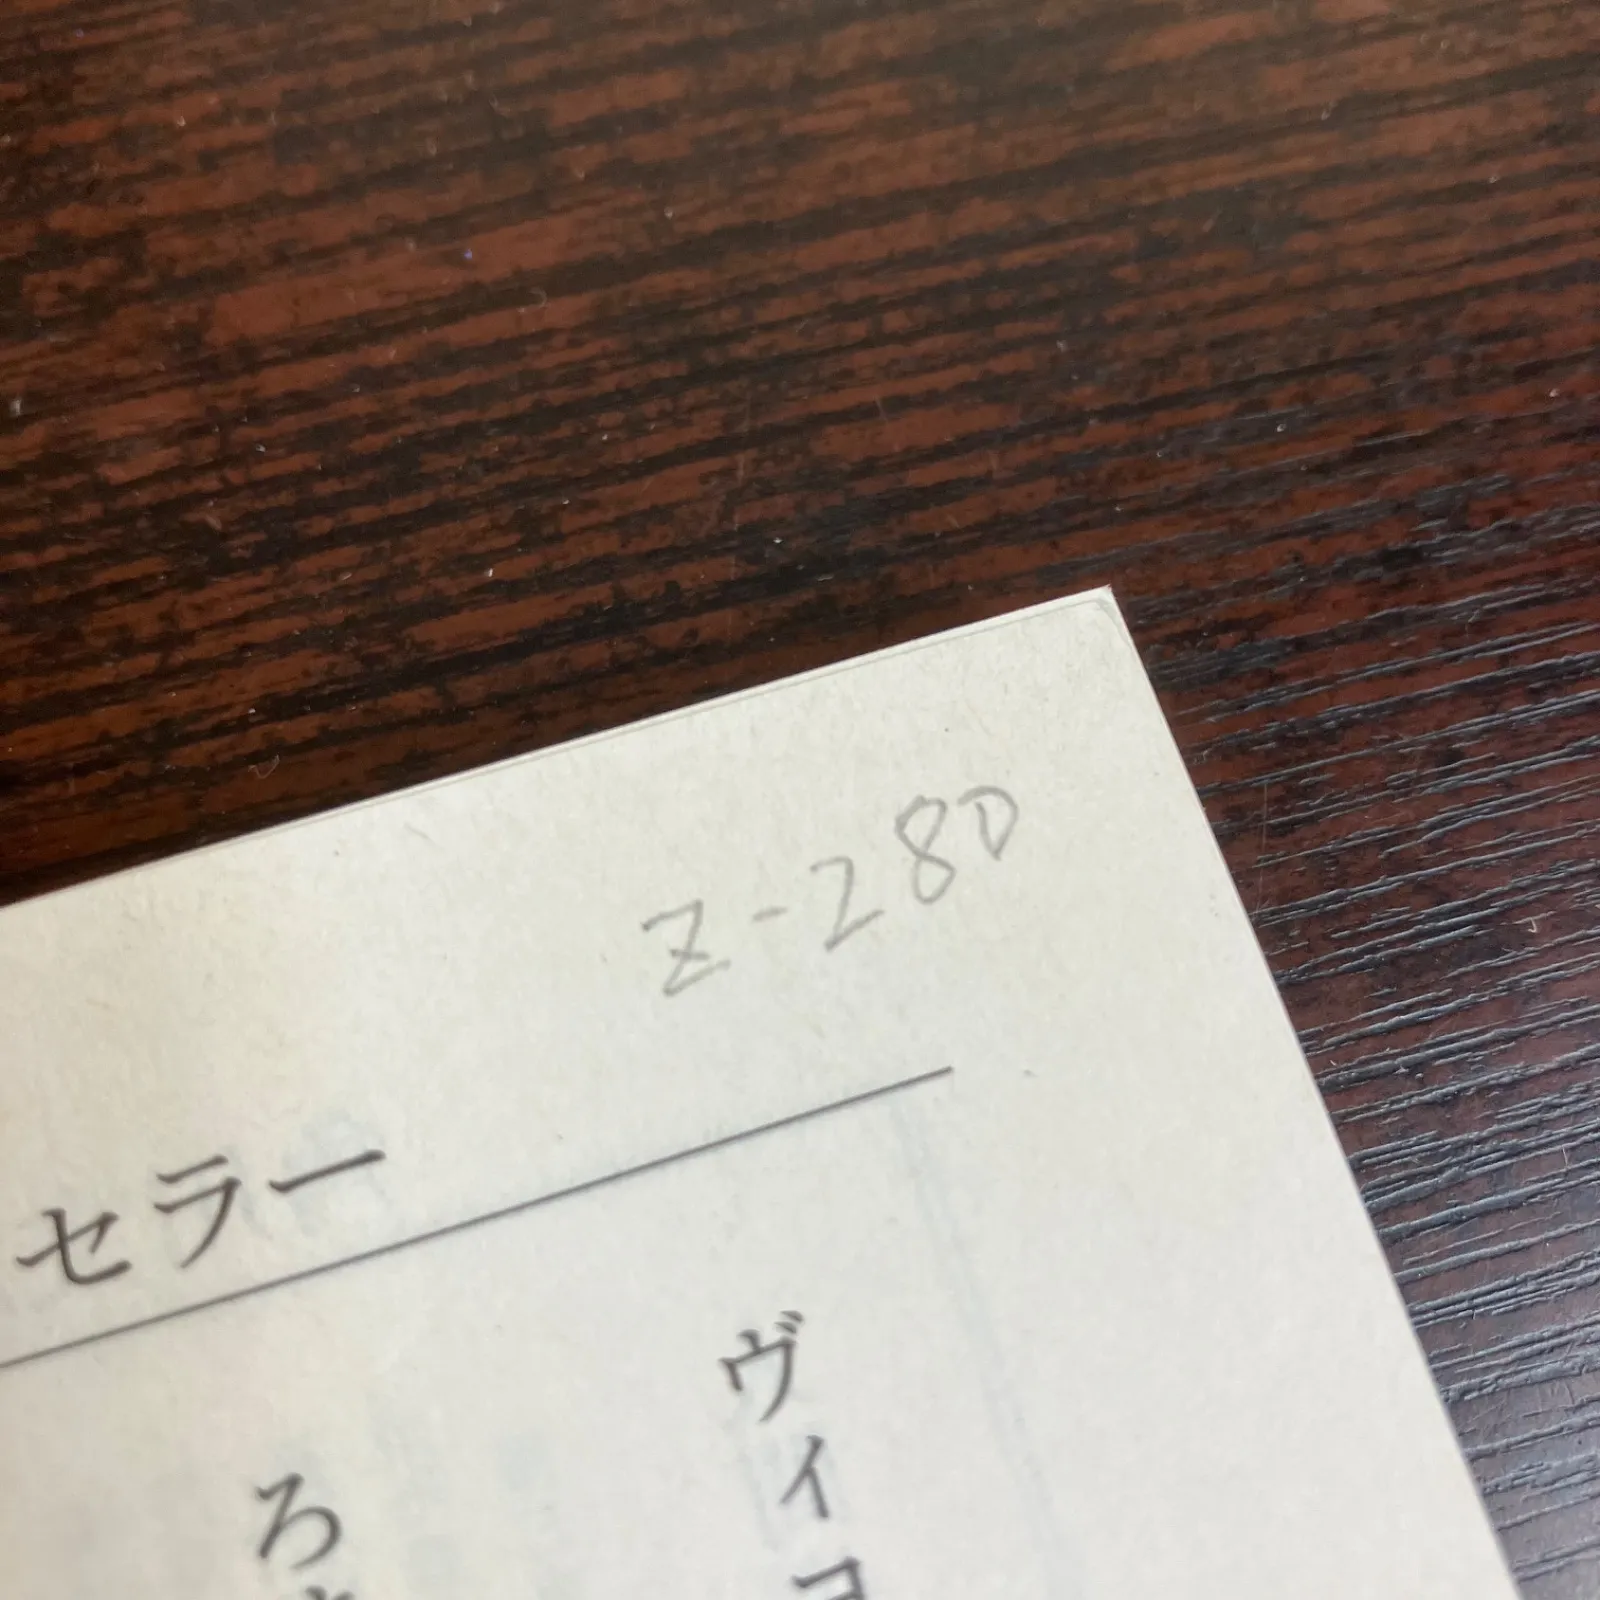 Z-280
セラー
ヴィヨ
ろ